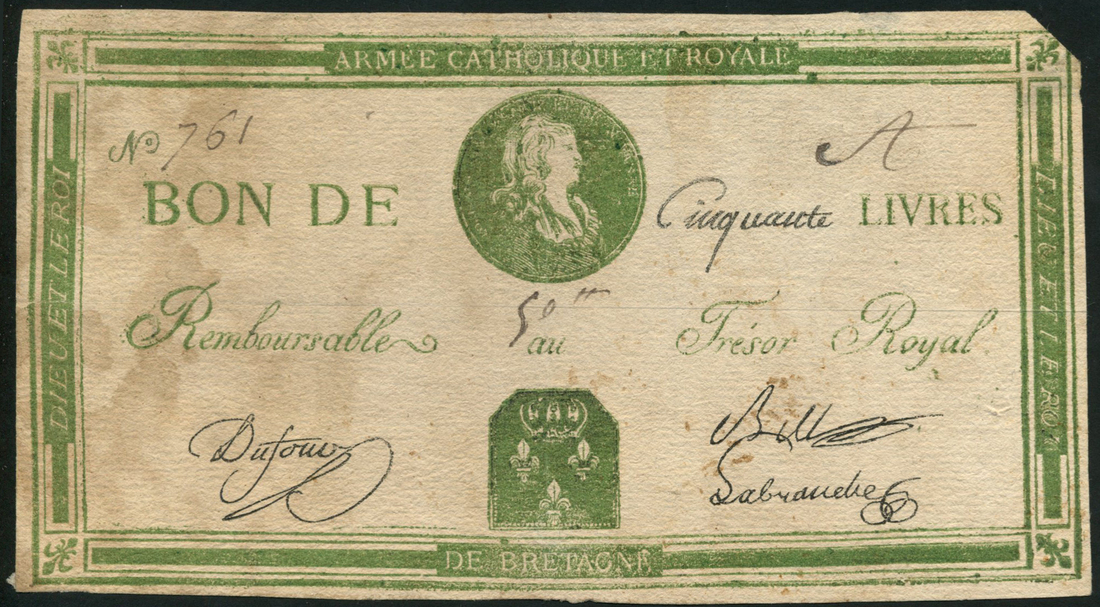 ARMÉE CATHOLIQUE ET ROYALE
No 761
A
BON DE Cinquante LIVRES
50 tt
Remboursable au Trésor Royal
Dufour
Labranche
DE BRETAGNE
DIEU ET LE ROI
DIEU ET LE ROI